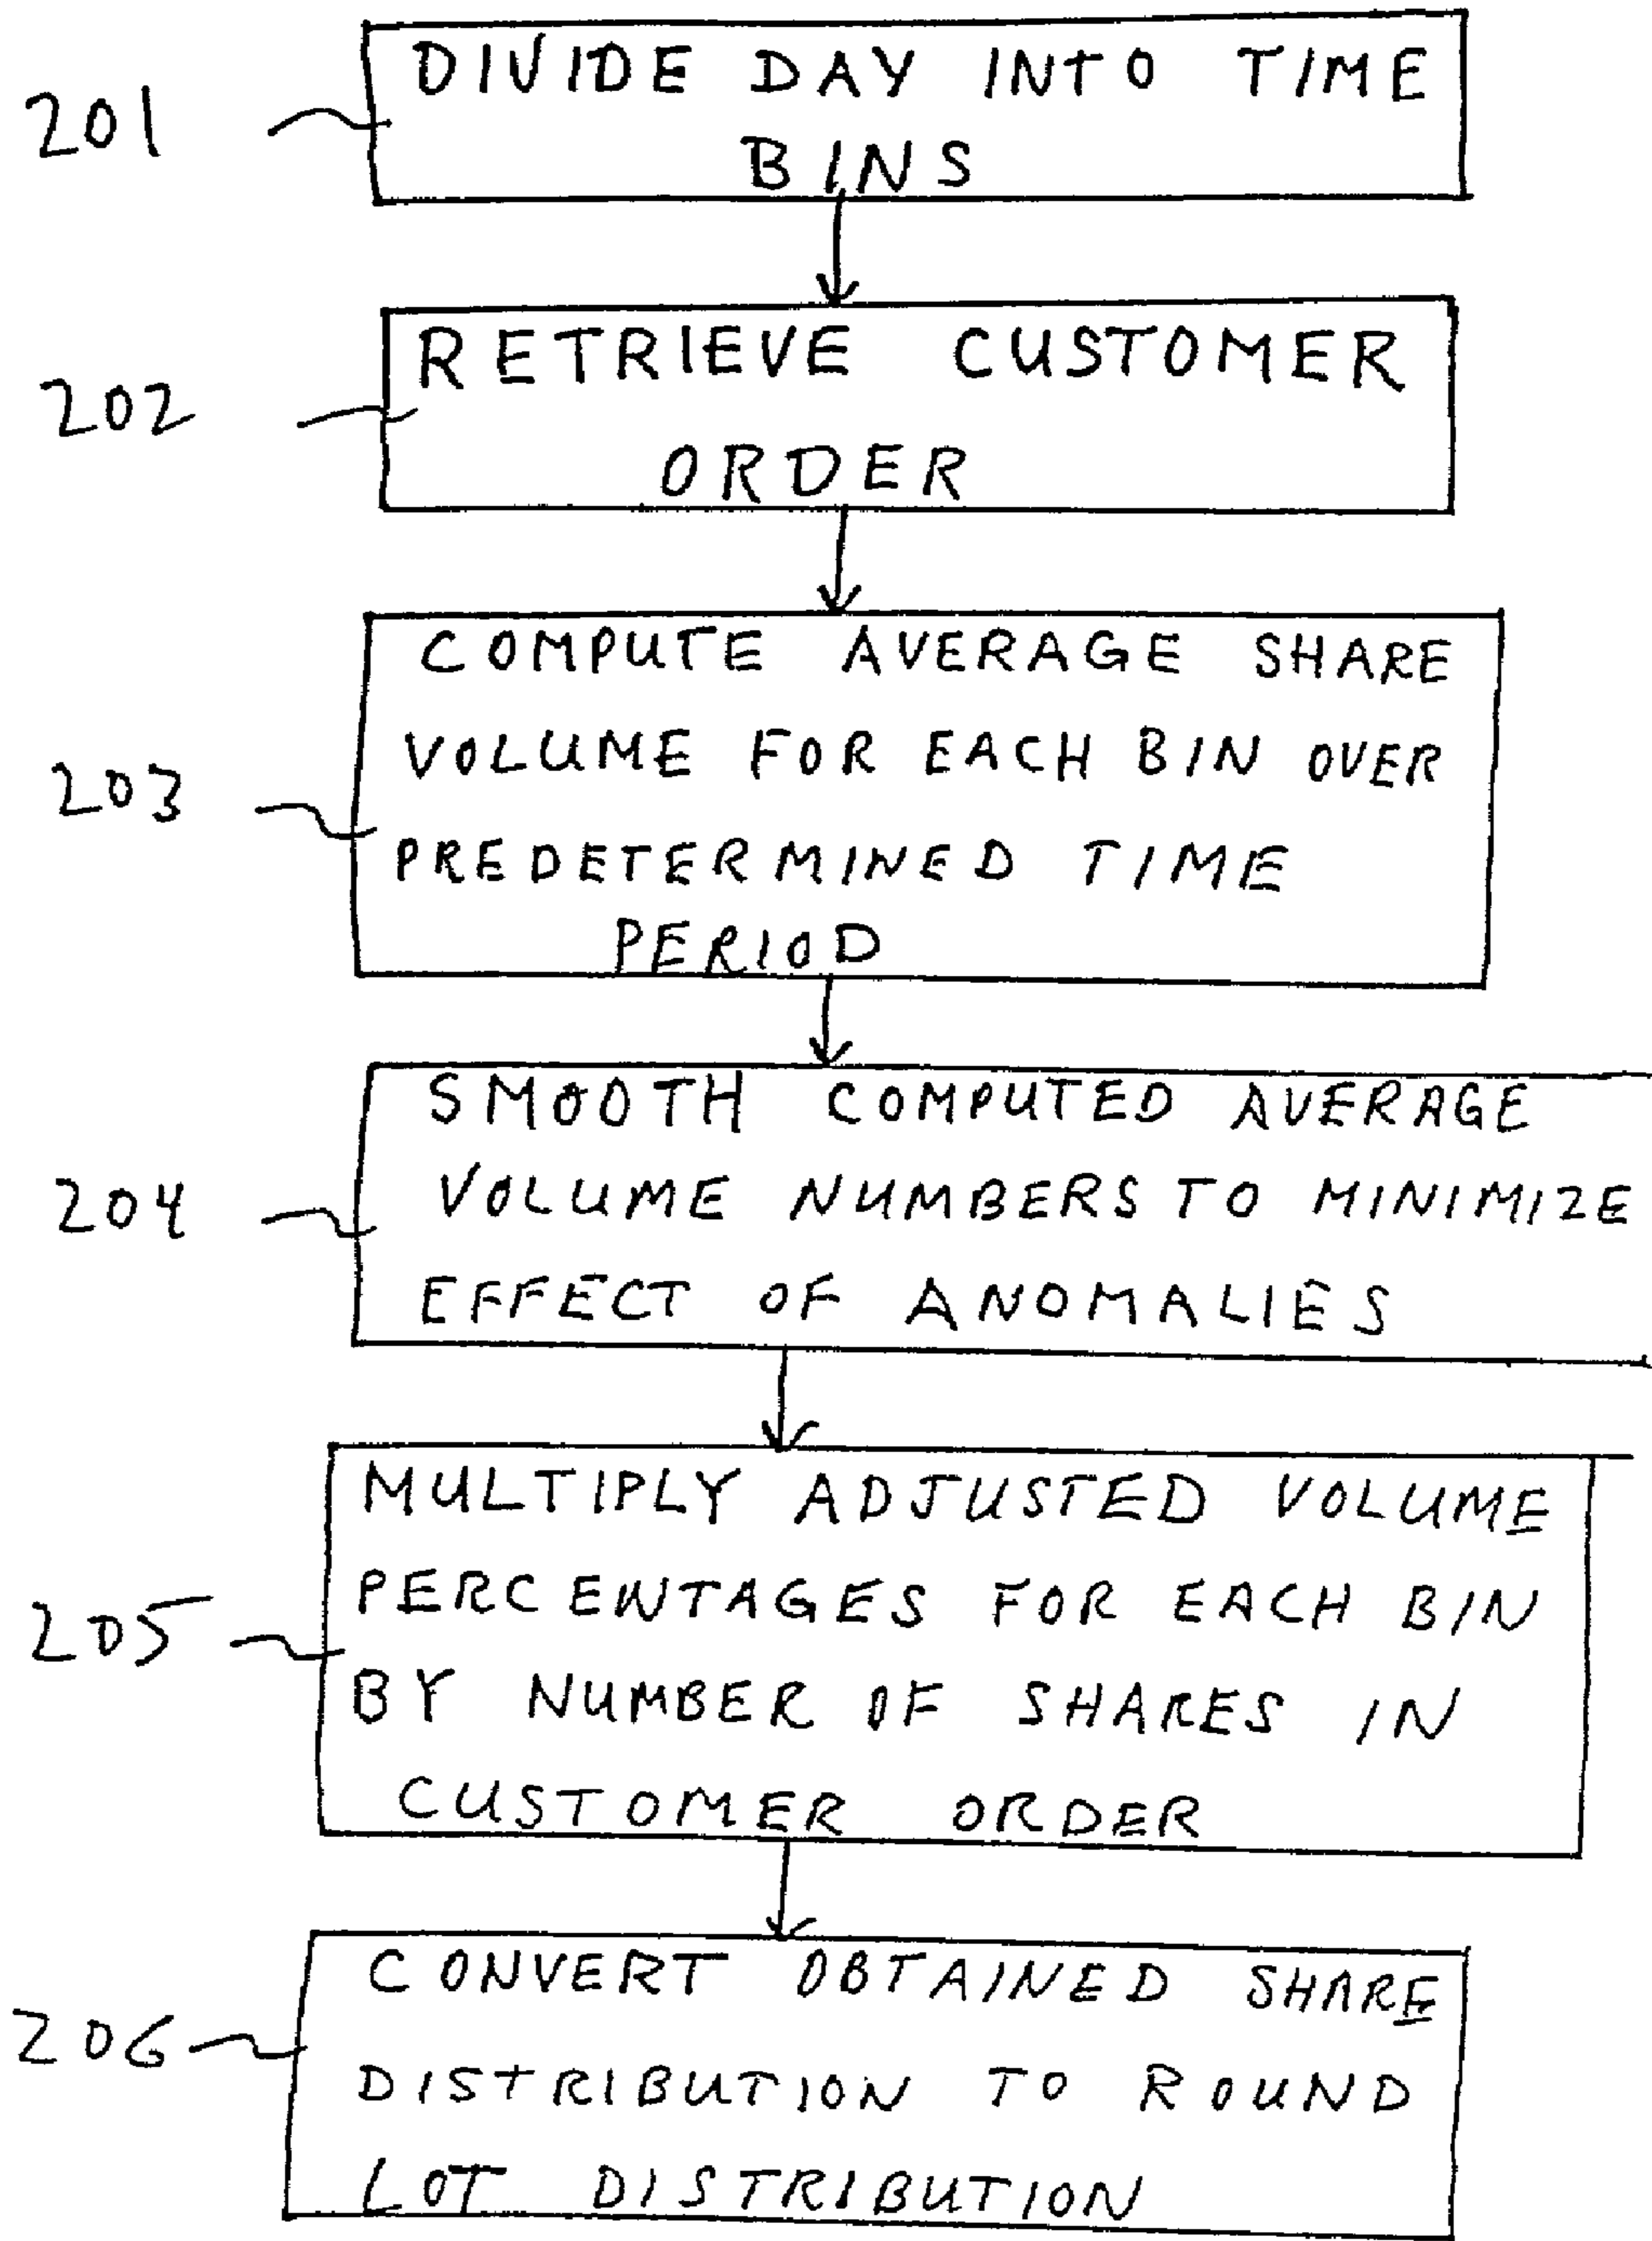 DIVIDE DAY INTO TIME
201
BINS
RETRIEVE CUSTOMER
202
ORDER
COMPUTE AVERAGE SHARE
VOLUME FOR EACH BIN OVER
203
PREDETERMINED TIME
PERIOD
SMOOTH COMPUTED AVERAGE
204
VOLUME NUMBERS TO MINIMIZE
EFFECT OF ANOMALIES
MULTIPLY ADJUSTED VOLUME
PERCENTAGES FOR EACH BIN
205
BY NUMBER OF SHARES IN
CUSTOMER ORDER
CONVERT OBTAINED SHARE
206
DISTRIBUTION TO ROUND
LOT DISTRIBUTION